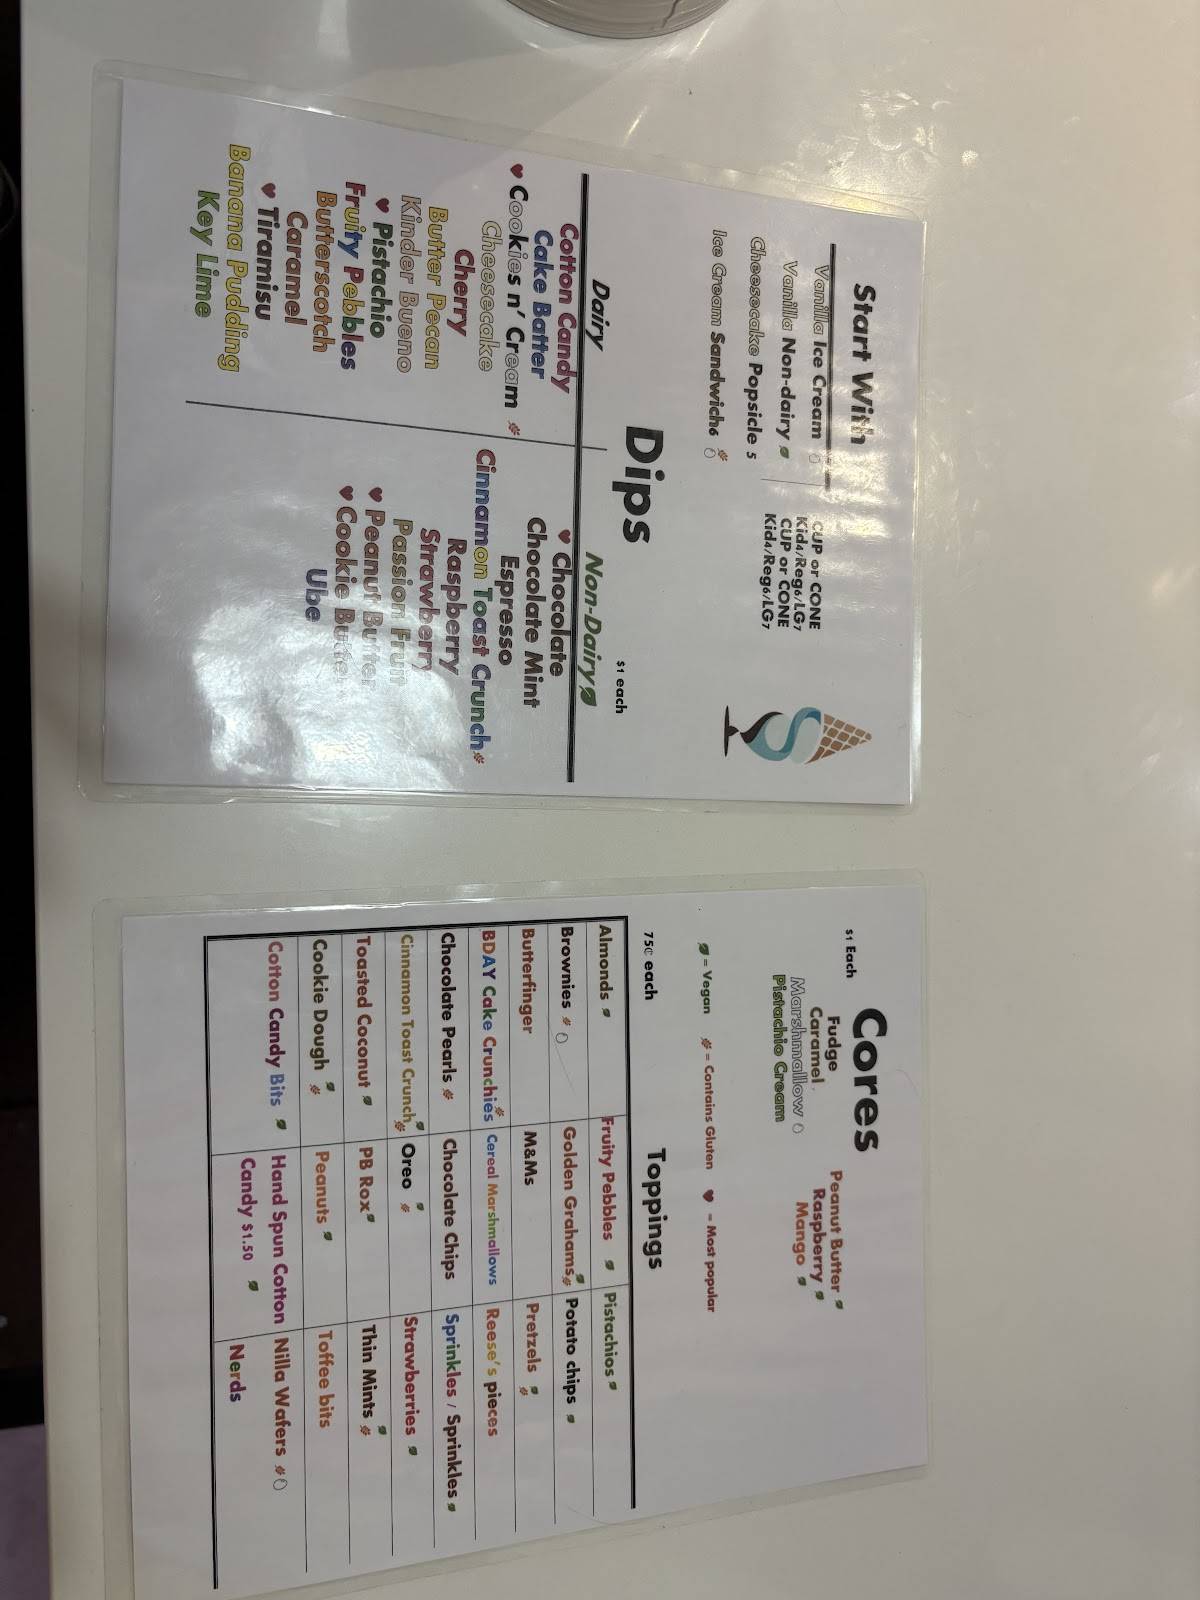 Start With
Vanilla Ice Cream
CUP or CONE
Kid4/Reg6/LG7
Vanilla Non-dairy
CUP or CONE
Kid4/Reg6/LG7
Cheesecake Popsicle 5
Ice Cream Sandwich6
Dips
$1 each
Dairy
Cotton Candy
Cake Batter
Cookies n' Cream
Cheesecake
Cherry
Butter Pecan
Kinder Bueno
Pistachio
Fruity Pebbles
Butterscotch
Caramel
Tiramisu
Banana Pudding
Key Lime
Non-Dairy
Chocolate
Chocolate Mint
Espresso
Cinnamon Toast Crunch
Raspberry
Strawberry
Passion Fruit
Peanut Butter
Cookie Butter
Ube
Cores
$1 Each
Fudge
Caramel
Marshmallow
Pistachio Cream
Peanut Butter
Raspberry
Mango
= Vegan
= Contains Gluten
= Most popular
75¢ each
Toppings
Almonds
Fruity Pebbles
Pistachios
Brownies
Golden Grahams
Potato chips
Butterfinger
M&Ms
Pretzels
BDAY Cake Crunchies
Cereal Marshmallows
Reese's pieces
Chocolate Pearls
Chocolate Chips
Sprinkles / Sprinkles
Cinnamon Toast Crunch
Oreo
Strawberries
Toasted Coconut
PB Rox
Thin Mints
Cookie Dough
Peanuts
Toffee bits
Cotton Candy Bits
Hand Spun Cotton
Candy $1.50
Nilla Wafers
Nerds